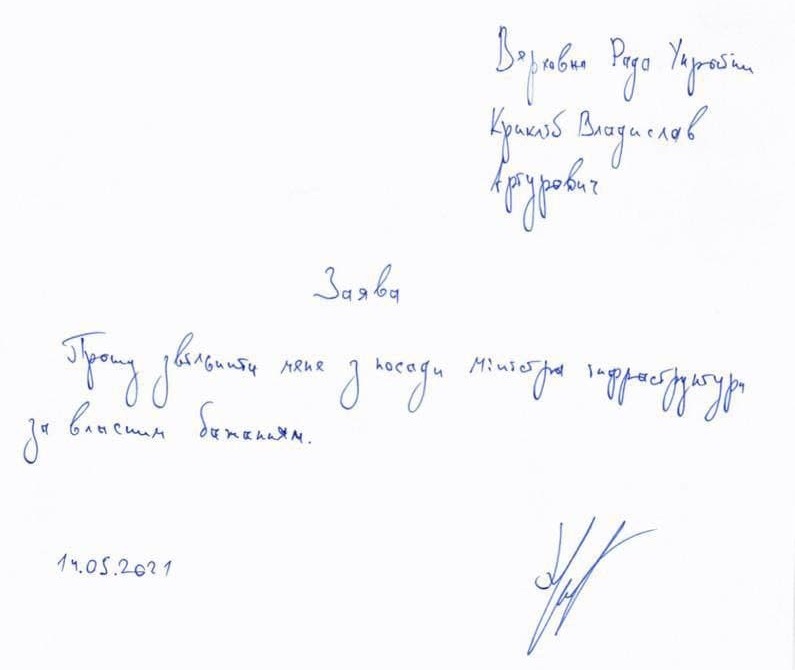 Верховна Рада України
Крикліб Владислав
Артурович
Заява
Прошу звільнити мене з посади міністра інфраструктури
за власним бажанням.
14.05.2021